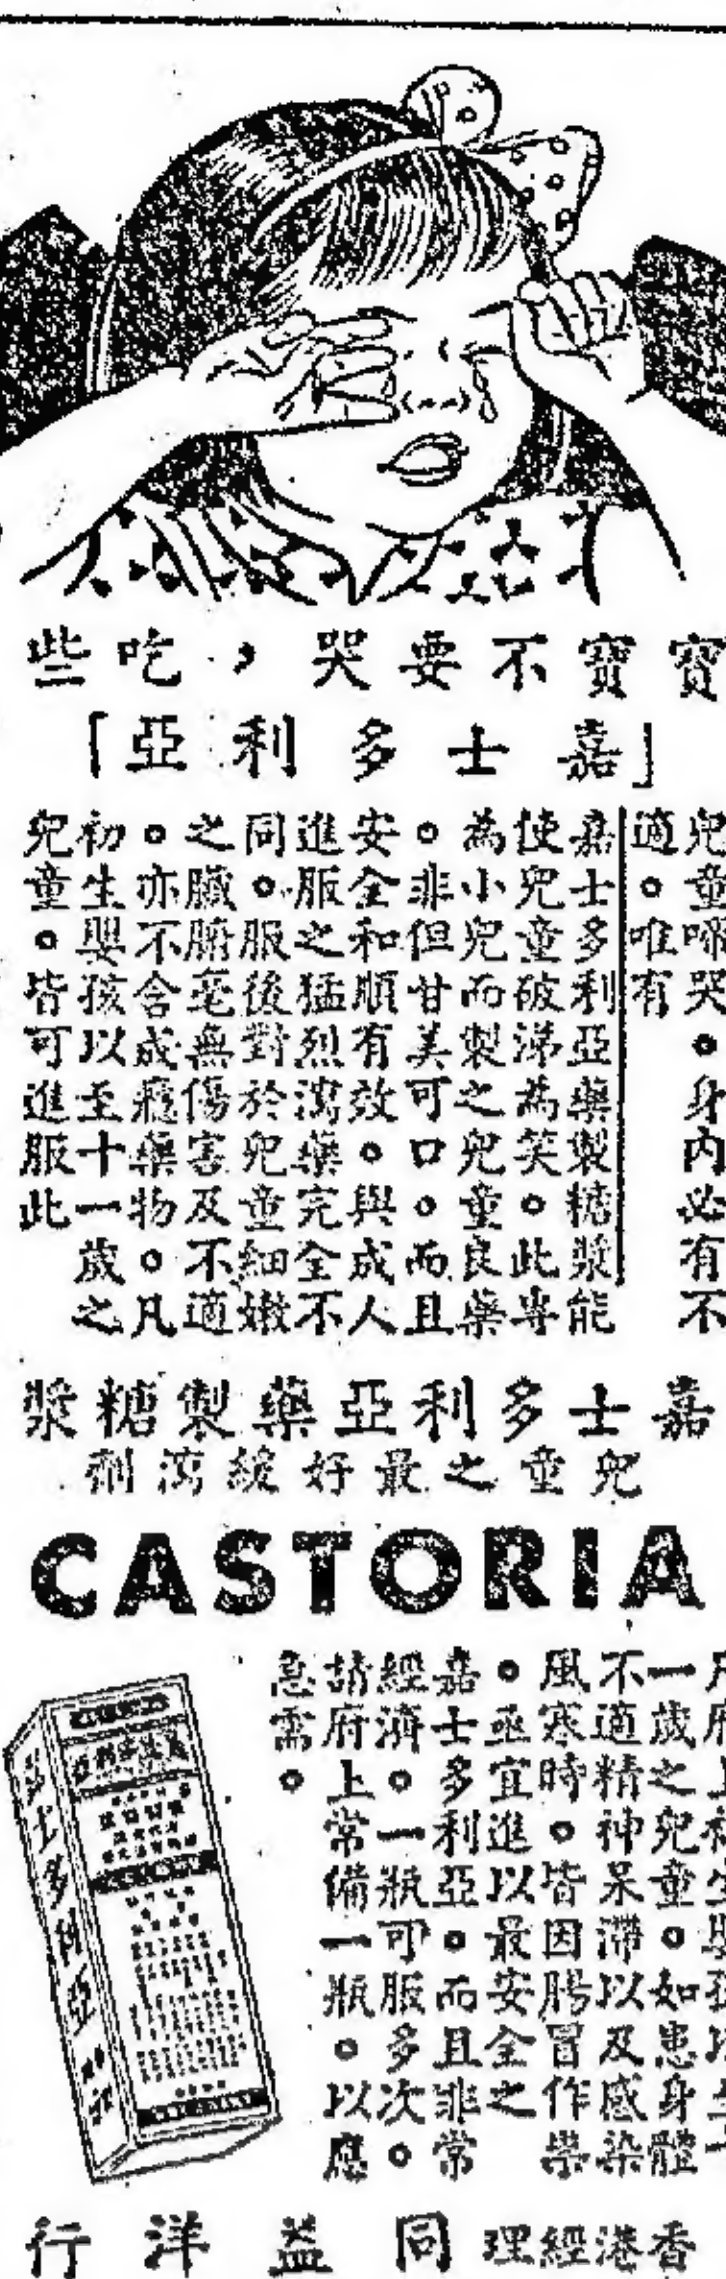 寶寶不要哭，吃些
「嘉士多利亞」
兒童啼哭。身內必有不
適。唯有
嘉士多利亞藥製糖漿能
使兒童破涕為笑。此專
為小兒而製之兒童良藥
。非但甘美可口。而且
安全和順有效。與成人
進服之猛烈瀉藥完全不
同。服後對於兒童細嫩
之臟腑毫無傷害及不適
。亦不含成癮藥物。凡
初生嬰孩以至十一歲之
兒童。皆可進服此
嘉士多利亞藥製糖漿
兒童之最好緩瀉劑
CASTORIA
府上初生嬰孩以至十
一歲之兒童。如患身體
不適精神呆滯以及感染
風寒時。皆因腸胃作祟
。亟宜進以最安全之
嘉士多利亞。而且非常
經濟。一瓶可服多次。
請府上常備一瓶。以應
急需。
嘉士多利亞
香港經理同益洋行